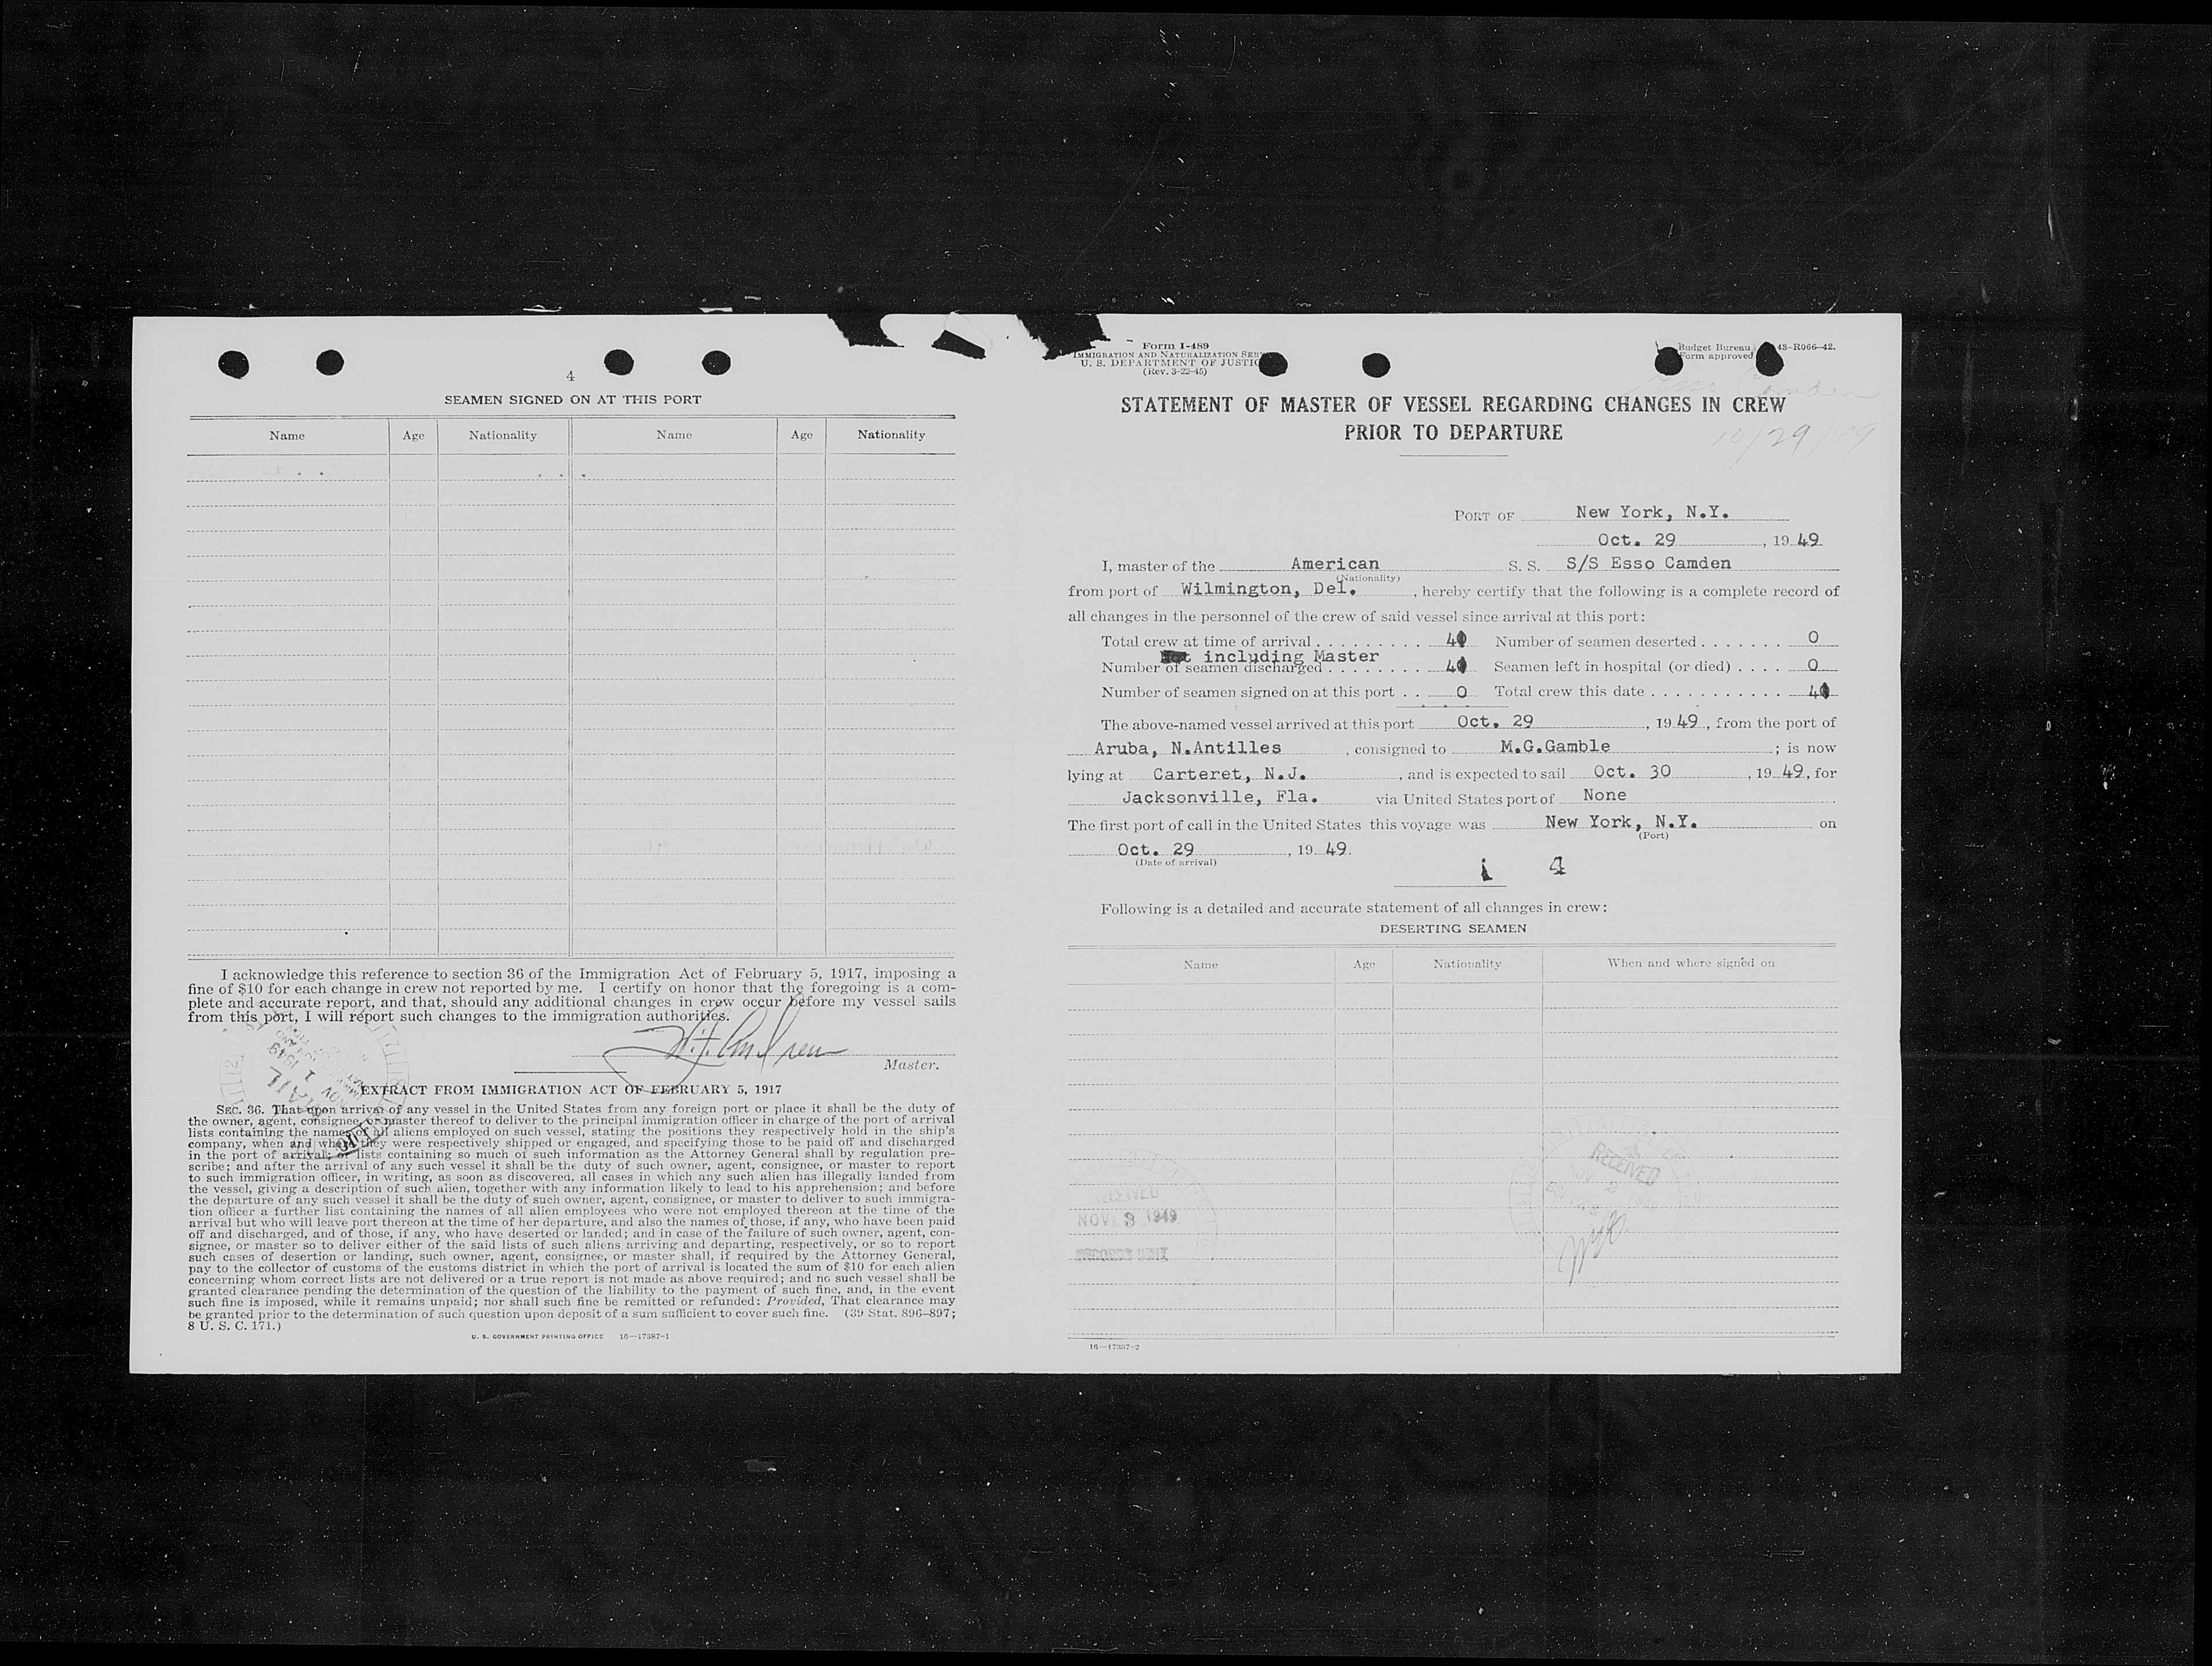 4
SEAMEN SIGNED ON AT THIS PORT
Name Age Nationality Name Age Nationality
I acknowledge this reference to section 36 of the Immigration Act of February 5, 1917, imposing a
fine of $10 for each change in crew not reported by me. I certify on honor that the foregoing is a com-
plete and accurate report, and that, should any additional changes in crew occur before my vessel sails
from this port, I will report such changes to the immigration authorities.
Master.
EXTRACT FROM IMMIGRATION ACT OF FEBRUARY 5, 1917
SEC. 36. That upon arrival of any vessel in the United States from any foreign port or place it shall be the duty of
the owner, agent, consignee, or master thereof to deliver to the principal immigration officer in charge of the port of arrival
lists containing the names of all aliens employed on such vessel, stating the positions they respectively hold in the ship's
company, when and where they were respectively shipped or engaged, and specifying those to be paid off and discharged
in the port of arrival; or lists containing so much of such information as the Attorney General shall by regulation pre-
scribe; and after the arrival of any such vessel it shall be the duty of such owner, agent, consignee, or master to report
to such immigration officer, in writing, as soon as discovered, all cases in which any such alien has illegally landed from
the vessel, giving a description of such alien, together with any information likely to lead to his apprehension; and before
the departure of any such vessel it shall be the duty of such owner, agent, consignee, or master to deliver to such immigra-
tion officer a further list containing the names of all alien employees who were not employed thereon at the time of the
arrival but who will leave port thereon at the time of her departure, and also the names of those, if any, who have been paid
off and discharged, and of those, if any, who have deserted or landed; and in case of the failure of such owner, agent, con-
signee, or master so to deliver either of the said lists of such aliens arriving and departing, respectively, or so to report
such cases of desertion or landing, such owner, agent, consignee, or master shall, if required by the Attorney General,
pay to the collector of customs of the customs district in which the port of arrival is located the sum of $10 for each alien
concerning whom correct lists are not delivered or a true report is not made as above required; and no such vessel shall be
granted clearance pending the determination of the question of the liability to the payment of such fine, and, in the event
such fine is imposed, while it remains unpaid; nor shall such fine be remitted or refunded: Provided, That clearance may
be granted prior to the determination of such question upon deposit of a sum sufficient to cover such fine. (39 Stat. 896–897;
8 U. S. C. 171.)
U. S. GOVERNMENT PRINTING OFFICE 16—17387-1
Form I-489
IMMIGRATION AND NATURALIZATION
U. S. DEPARTMENT OF
(Rev. 3-22-45)
Budget Bureau 43-R066-42.
Form approved
Esso Camden
10/29/49
STATEMENT OF MASTER OF VESSEL REGARDING CHANGES IN CREW
PRIOR TO DEPARTURE
PORT OF New York, N.Y.
Oct. 29, 1949
I, master of the American S. S. S/S Esso Camden
(Nationality)
from port of Wilmington, Del., hereby certify that the following is a complete record of
all changes in the personnel of the crew of said vessel since arrival at this port:
Total crew at time of arrival Number of seamen deserted 0
including Master
Number of seamen discharged Seamen left in hospital (or died) 0
Number of seamen signed on at this port 0 Total crew this date
The above-named vessel arrived at this port Oct. 29, 1949, from the port of
Aruba, N.Antilles, consigned to M.G.Gamble; is now
lying at Carteret, N.J., and is expected to sail Oct. 30, 1949, for
Jacksonville, Fla. via United States port of None
The first port of call in the United States this voyage was New York, N.Y. on
(Port)
Oct. 29, 1949.
(Date of arrival)
4
Following is a detailed and accurate statement of all changes in crew:
DESERTING SEAMEN
Name Age Nationality When and where signed on
RECEIVED
NOV 3 1949
RECORDS UNIT
RECEIVED
16—17387-2